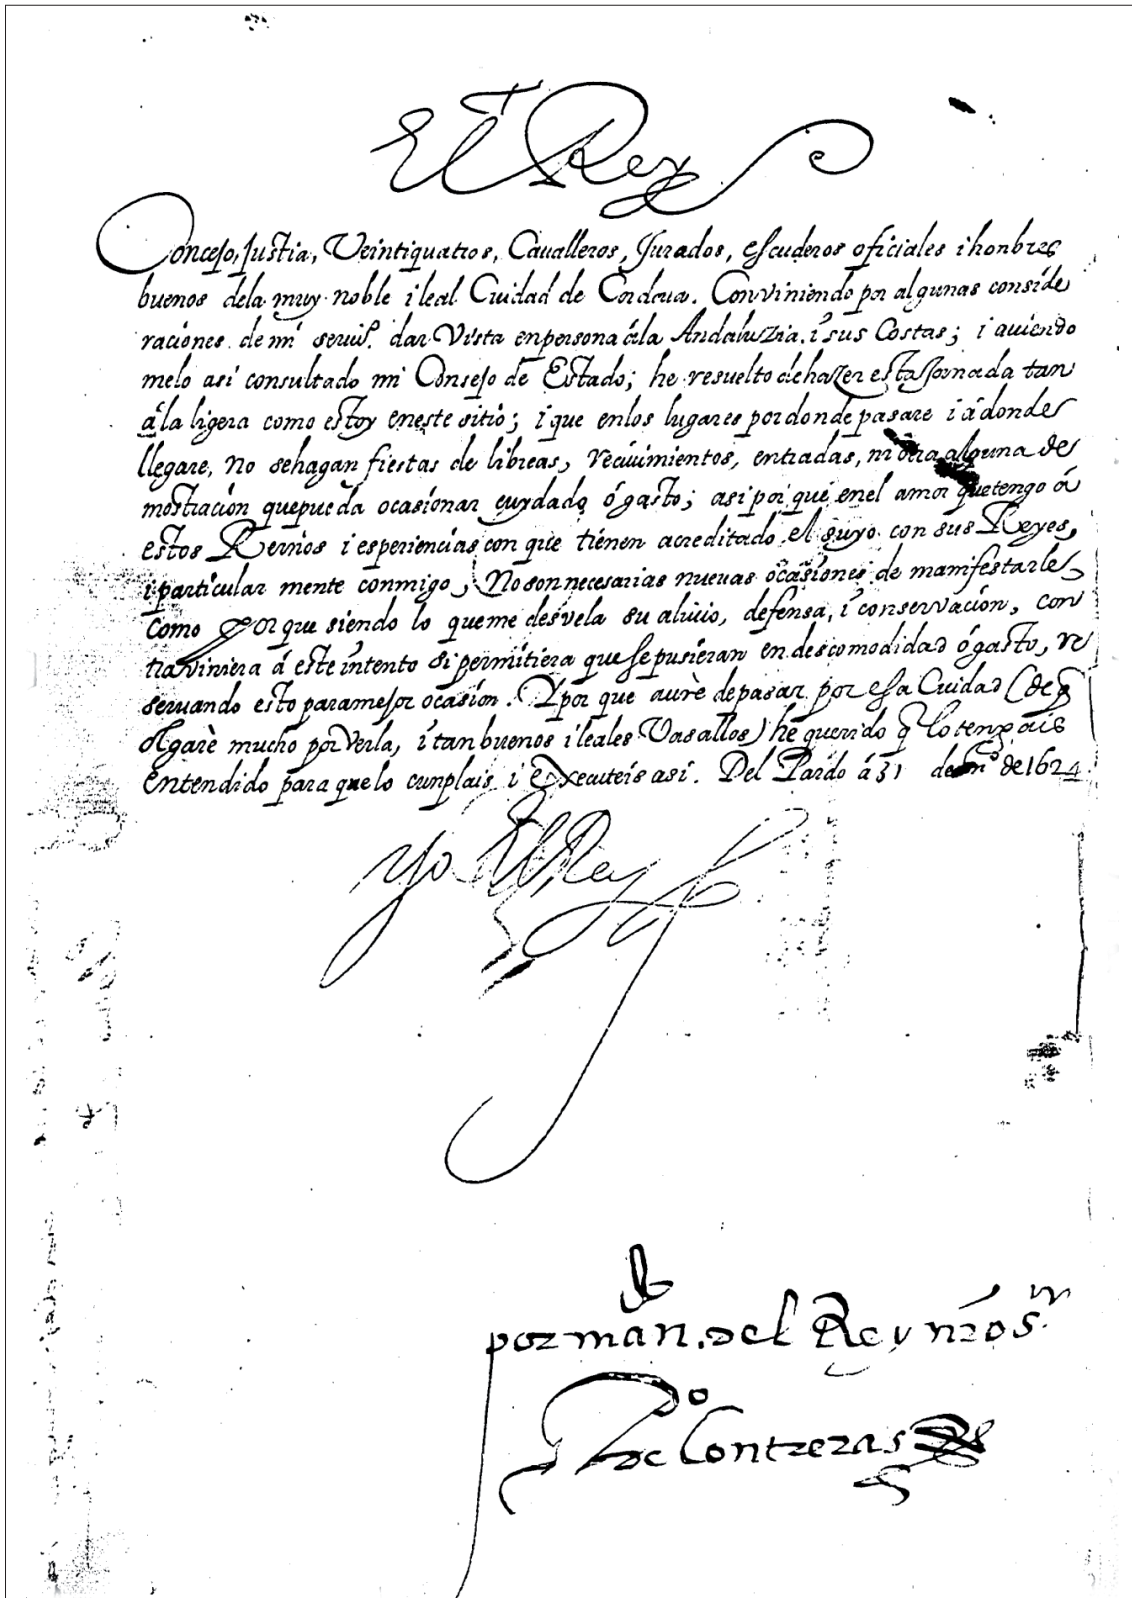 El Rey
Concejo, Justia, Veintiquatros, Cavalleros, Jurados, escuderos oficiales i honbres
buenos dela muy noble i leal Ciudad de Cordova. Conviniendo por algunas conside
raciones de mi servi.º dar Vista enpersona ála Andaluzia, i sus Costas; i aviendo
melo asi consultado mi Consejo de Estado; he resuelto dehazer esta Jornada tan
á la ligera como estoy eneste sitio; i que enlos lugares pordonde pasare i ádonde
llegare, no sehagan fiestas de libreas, recivimientos, entradas, ni otra alguna de
mostracion quepueda ocasionar cuydado ó gasto; asi por que enel amor quetengo á
estos Reinos i esperiencias con que tienen acreditado el suyo con sus Reyes,
i particular mente conmigo, No son necesarias nuevas ocasiones de manifestarle,
como por que siendo lo queme desvela su alivio, defensa, i conservacion, con
traviniera á este intento si permitiera que se pusieran en descomodidad ó gasto, re
servando esto paramejor ocasion. Y por que avrè depasar por esa Ciudad (de q̃
olgarè mucho por Verla, i tan buenos i leales Vasallos) he querido q̃ lo tengais
entendido para que lo cunplais i executeis asi. Del Pardo á 31 de en.º de 1624
Yo El Rey
por man. del Rey nr̃o s.ʳ
P.º de Contreras